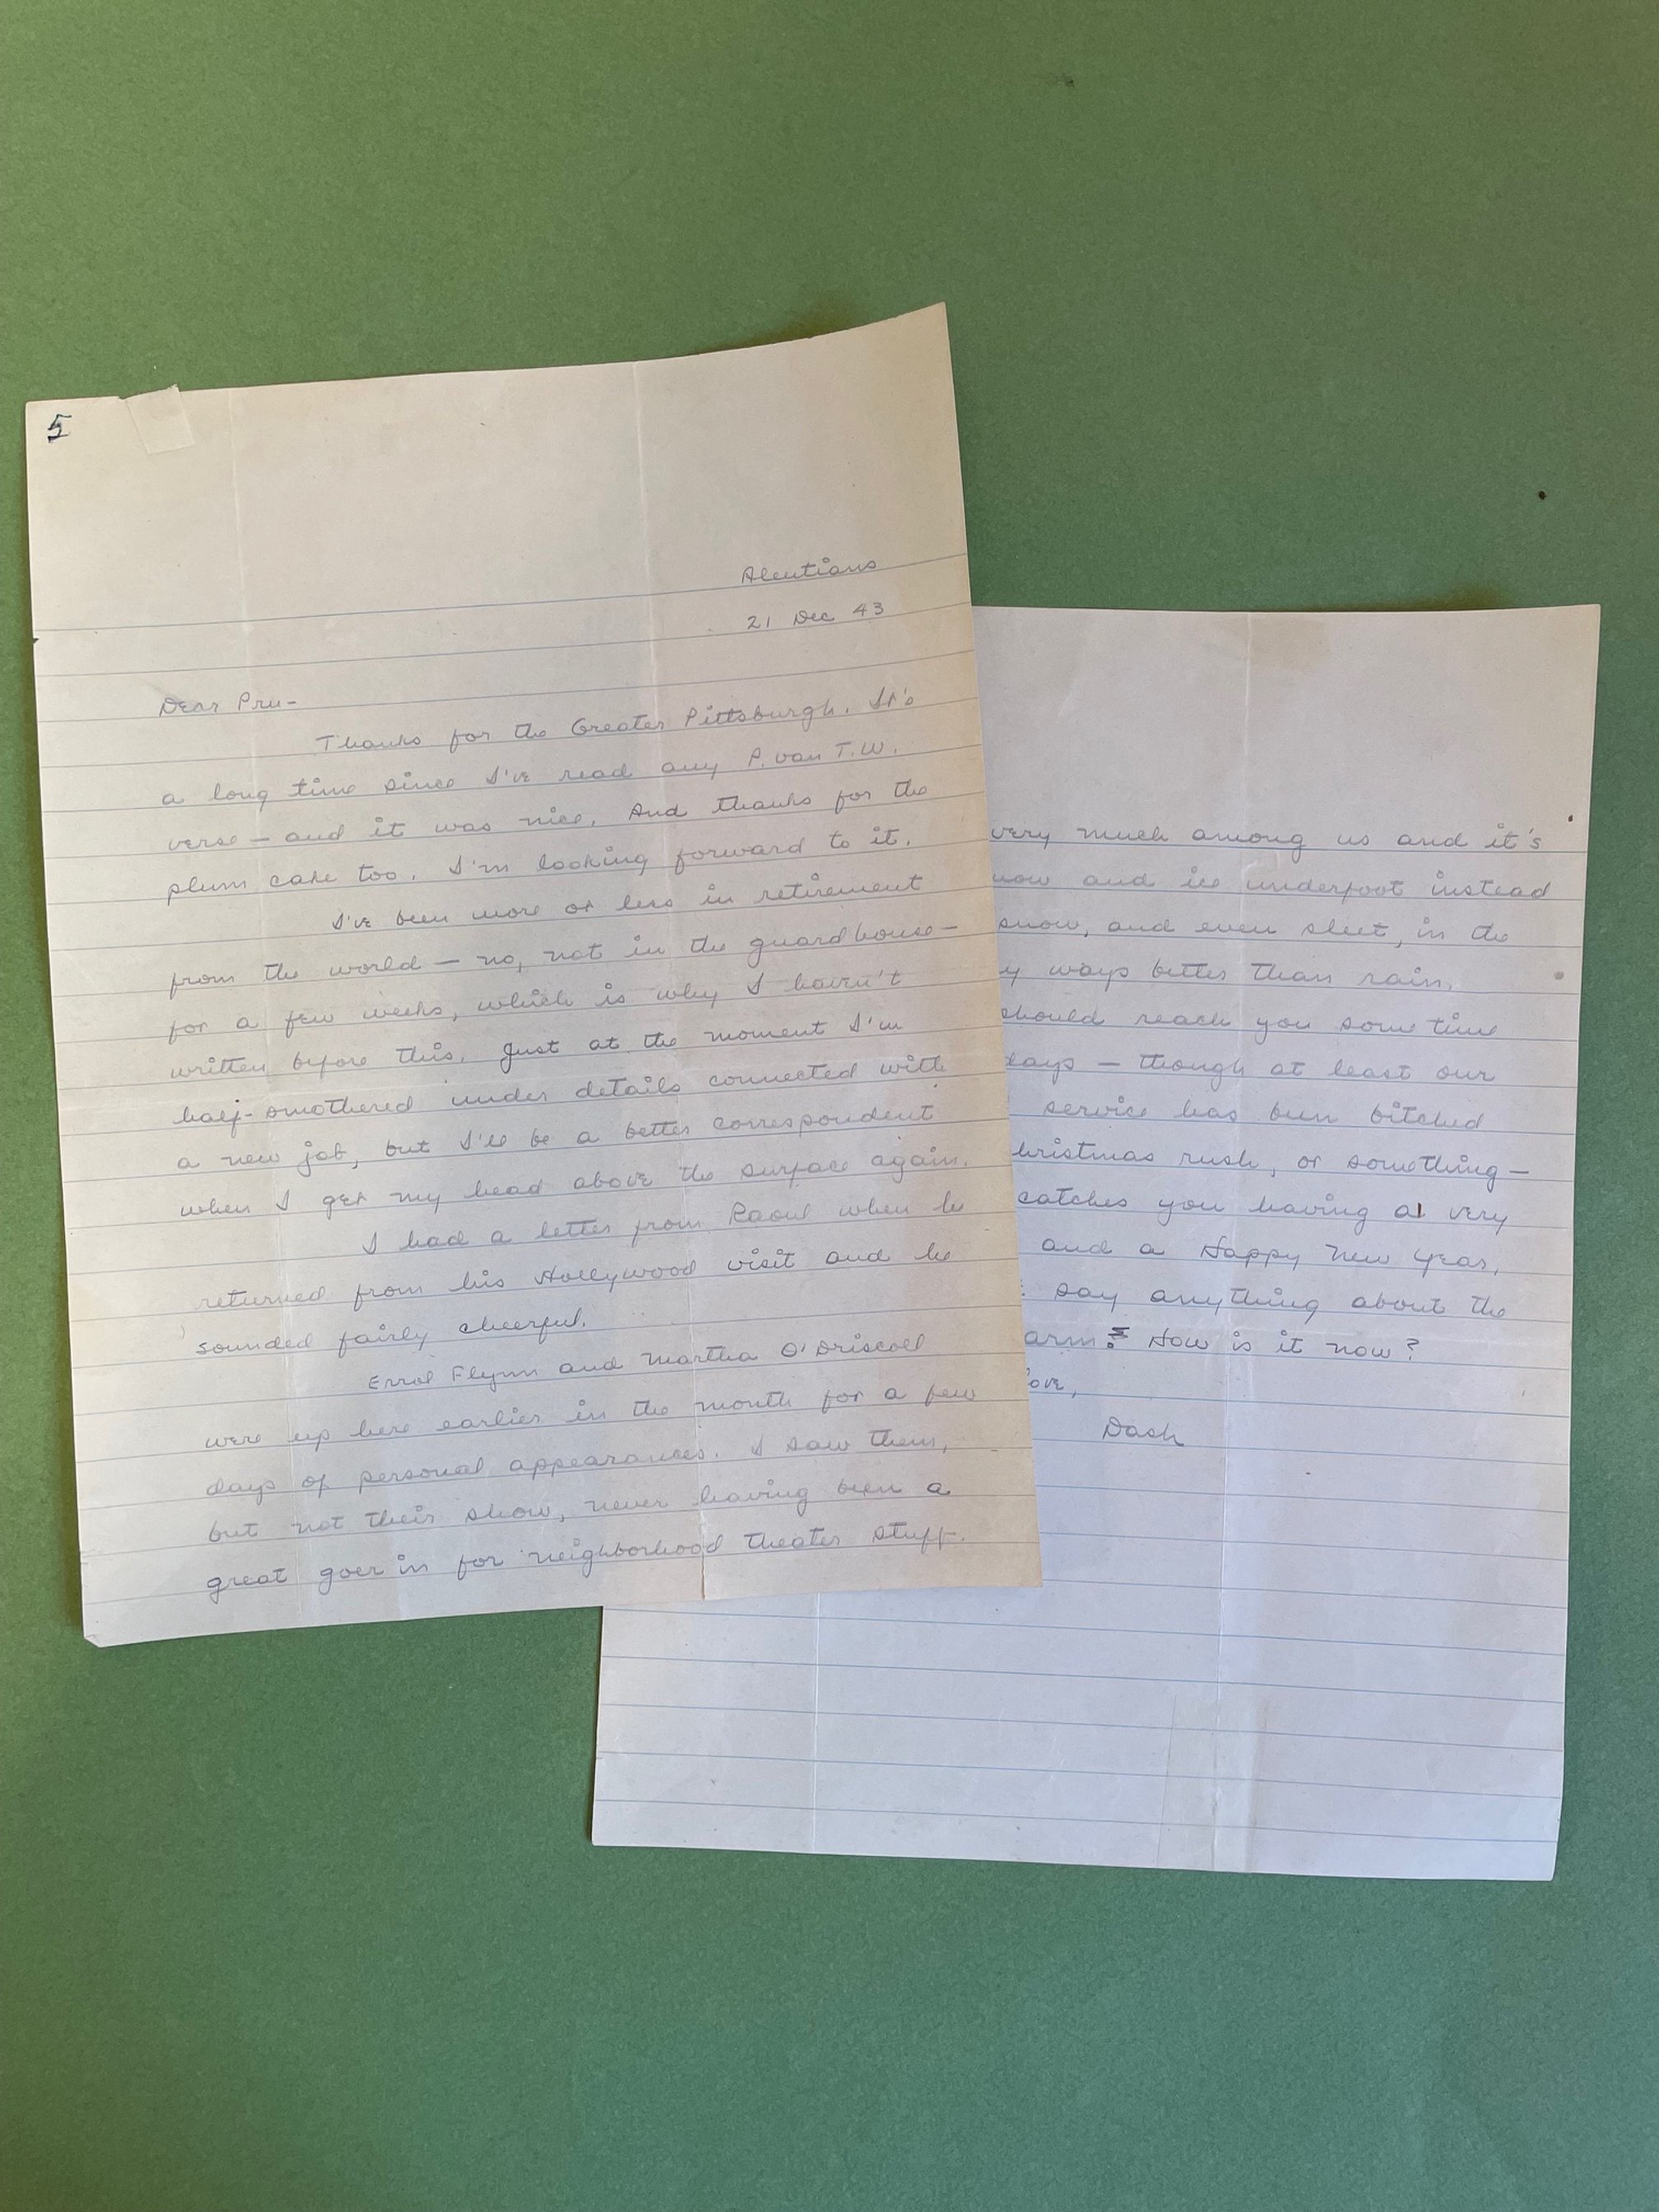 5
Aleutians
21 Dec 43
Dear Pru-
Thanks for the Greater Pittsburgh. It's
a long time since I've read any P. van T. W.
verse — and it was nice. And thanks for the
plum cake too. I'm looking forward to it.
I've been more or less in retirement
from the world — no, not in the guardhouse —
for a few weeks, which is why I haven't
written before this. Just at the moment I'm
half-smothered under details connected with
a new job, but I'll be a better correspondent
when I get my head above the surface again.
I had a letter from Raoul when he
returned from his Hollywood visit and he
sounded fairly cheerful.
Errol Flynn and Martha O'Driscoll
were up here earlier in the month for a few
days of personal appearances. I saw them,
but not their show, never having been a
great goer in for neighborhood theater stuff.
very much among us and it's
now and ice underfoot instead
snow, and even sleet, in the
y ways better than rain.
should reach you some time
days — though at least our
service has been bitched
hristmas rush, or something —
catches you having a very
and a Happy New Year,
say anything about the
arm. How is it now?
ove,
Dash